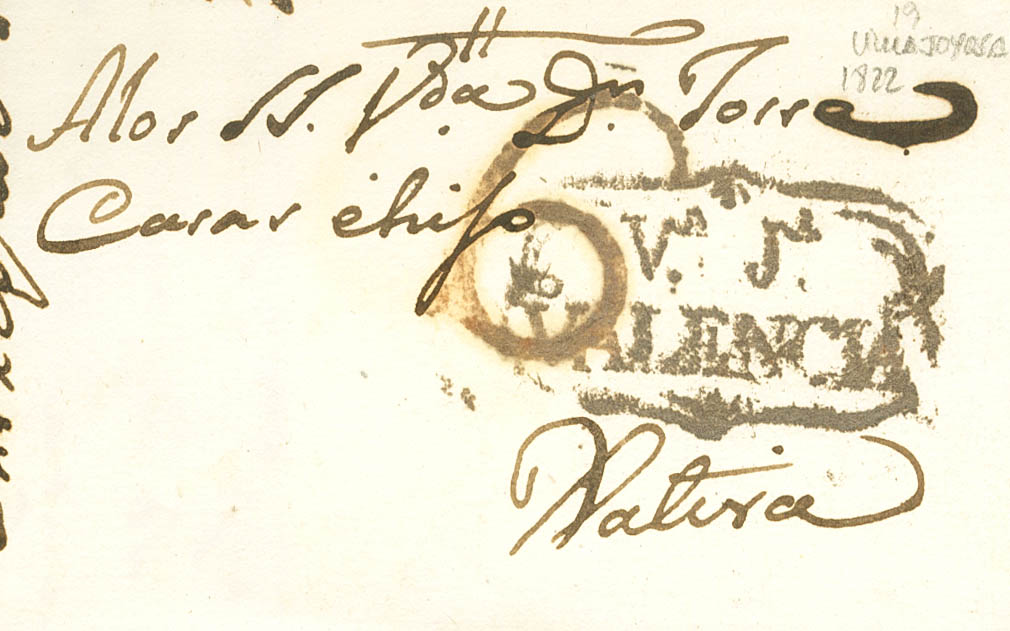 19
VILLAJOYOSA
1822
A los SS. V.da D.n Torre
Casas é hijo
V.a J.sa
VALENCIA
Xativa